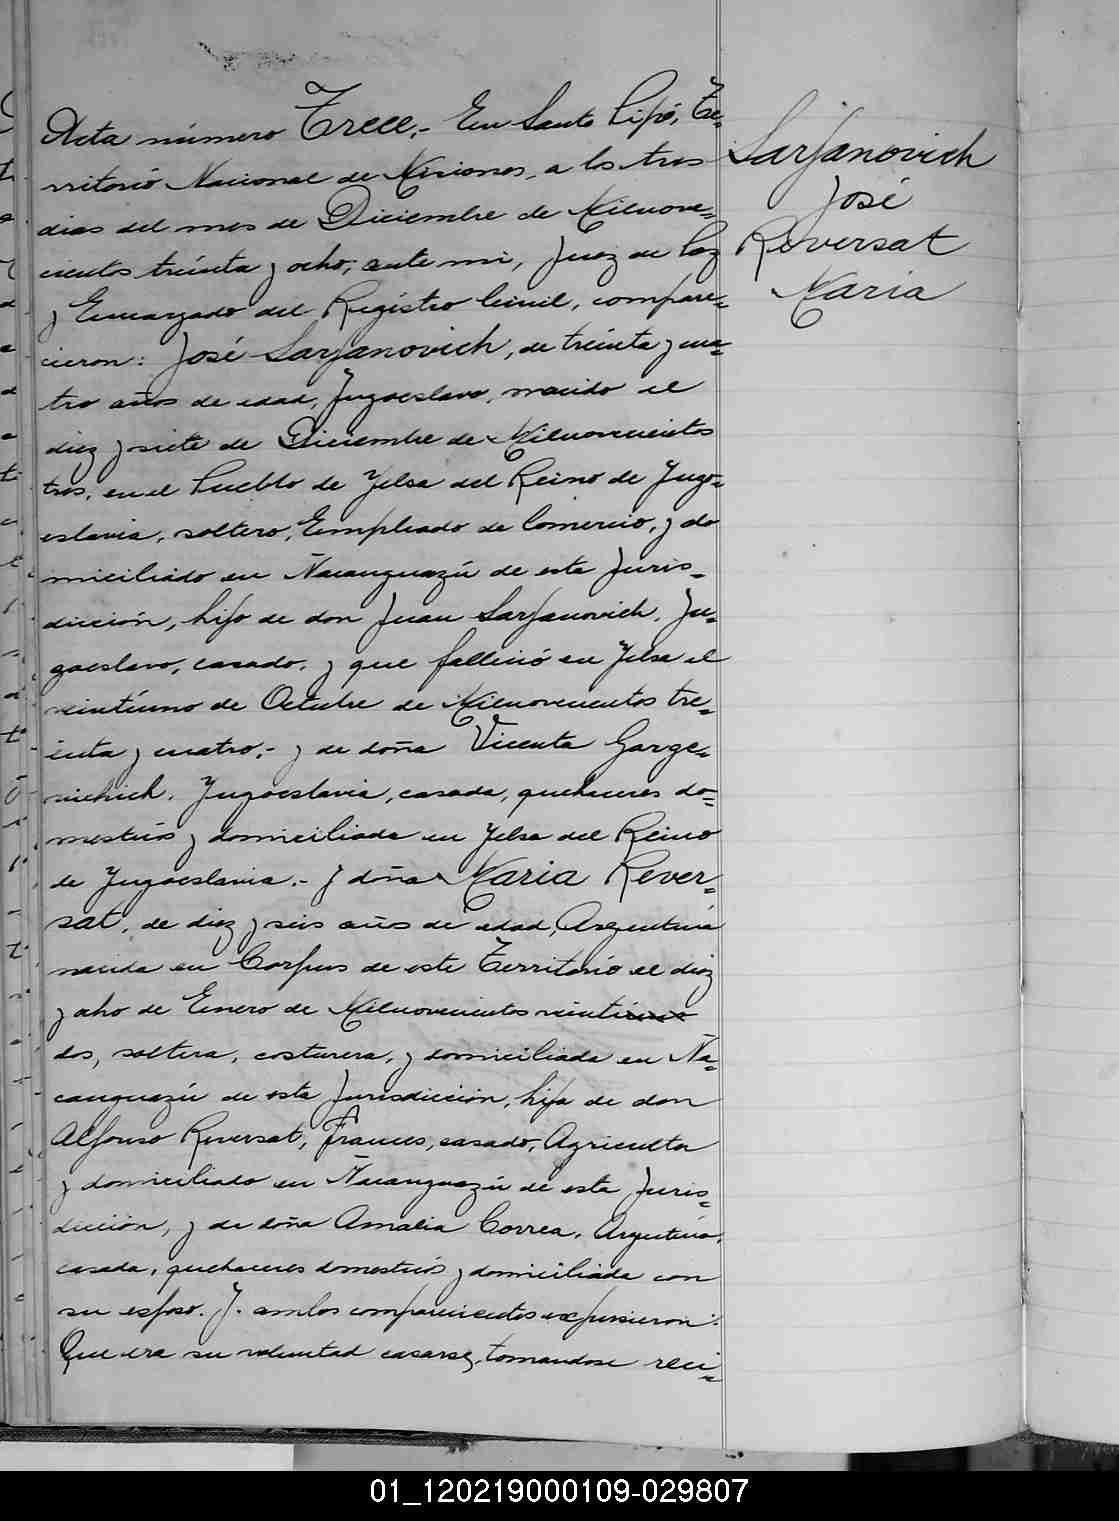 Acta número Trece,- En Santo Pipó, Te-
rritorio Nacional de Misiones, a los tres
dias del mes de Diciembre de Milnove-
cientos treinta y ocho, ante mi, Juez de Paz
y Encargado del Registro Civil, compare-
cieron: José Sarjanovich, de treinta y cua-
tro años de edad, Jugoeslavo, nacido el
diez y siete de Diciembre de Milnovecientos
tres, en el Pueblo de Jelsa del Reino de Jugo-
eslavia, soltero, Empleado de Comercio, y do
miciliado en Ñacanguazú de esta Juris-
dicción, hijo de don Juan Sarjanovich, Ju-
goeslavo, casado, y que falleció en Jelsa el
veintiuno de Octubre de Milnovecientos tre-
inta y cuatro,- y de doña Vicenta Garge-
vichich, Jugoeslavia, casada, quehaceres do-
mesticos y domiciliada en Jelsa del Reino
de Jugoeslavia.- y doña Maria Rever-
sat, de diez y seis años de edad, Argentina
nacida en Corpus de este Territorio el diez
y ocho de Enero de Milnovecientos veintiuno
dos, soltera, costurera, y domiciliada en Ña-
canguazú de esta Jurisdicción, hija de don
Alfonso Reversat, Frances, casado, Agricultor
y domiciliado en Ñacanguazú de esta Juris-
dicción, y de doña Amalia Correa, Argentina,
casada, quehaceres domesticos y domiciliada con
su esposo. Y. ambos comparecientes expusieron:
Que era su voluntad casarse, tomandose reci-
Sarjanovich
José
Reversat
Maria
01_120219000109-029807